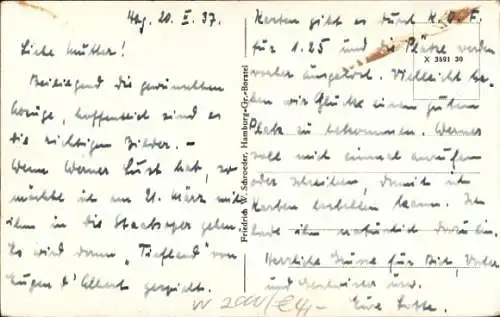 Hbg. 20. II. 37.
Liebe Mutter!
Beiliegend die gewünschten
Abzüge, hoffentlich sind es
die richtigen Bilder. –
Wenn Werner Lust hat, so
möchte ich am 21. März mit
ihm in die Staatsoper gehen.
Es wird dann "Tiefland" von
Eugen d'Albert gespielt.
Karten gibt es durch K.d.F.
für 1.25 und die Plätze werden
vorher ausgelost. Vielleicht ha-
ben wir Glück einen guten
Platz zu bekommen. Werner
soll mich einmal anrufen
oder schreiben, damit ich
Karten bestellen kann. Ich
lade ihn natürlich dazu ein.
Herzliche Grüsse für Dich, Vater
und
Eure Lotte.
Friedrich W. Schroeder, Hamburg-Gr.-Borstel
X 3691 30